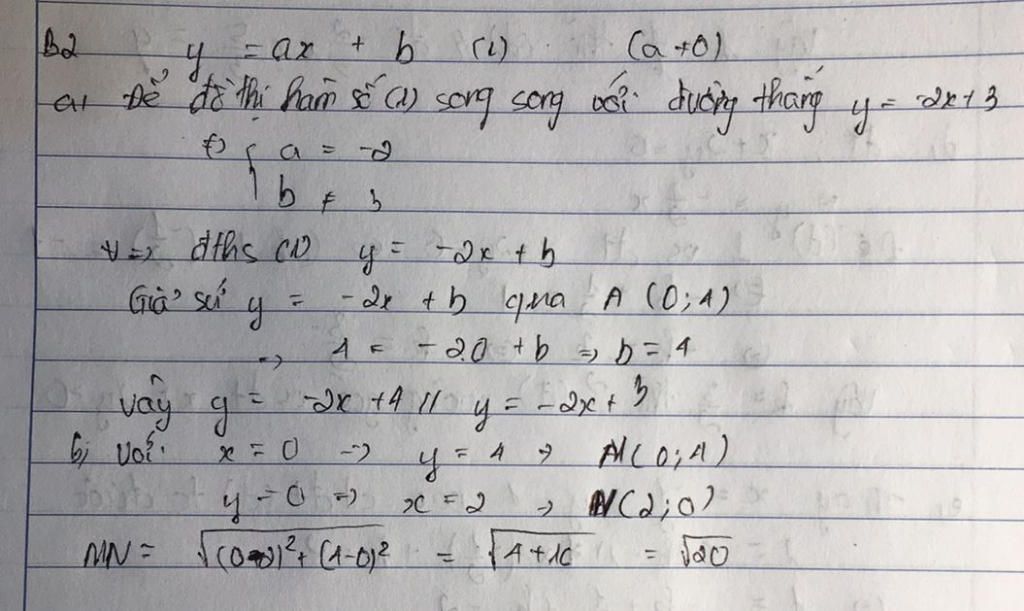 B2 y = ax + b (1) (a ≠ 0)
a, Để đồ thị hàm số (1) song song với đường thẳng y = -2x+3
<=> { a = -2
b ≠ 3
=> đths (1) y = -2x + b
Giả sử y = -2x + b qua A (0;4)
=> 4 = -2.0 + b => b = 4
Vậy y = -2x +4 // y = -2x + 3
b; Với x = 0 => y = 4 => M(0;4)
y = 0 => x = 2 -> N(2;0)
MN = √(0-2)² + (4-0)² = √4+16 = √20